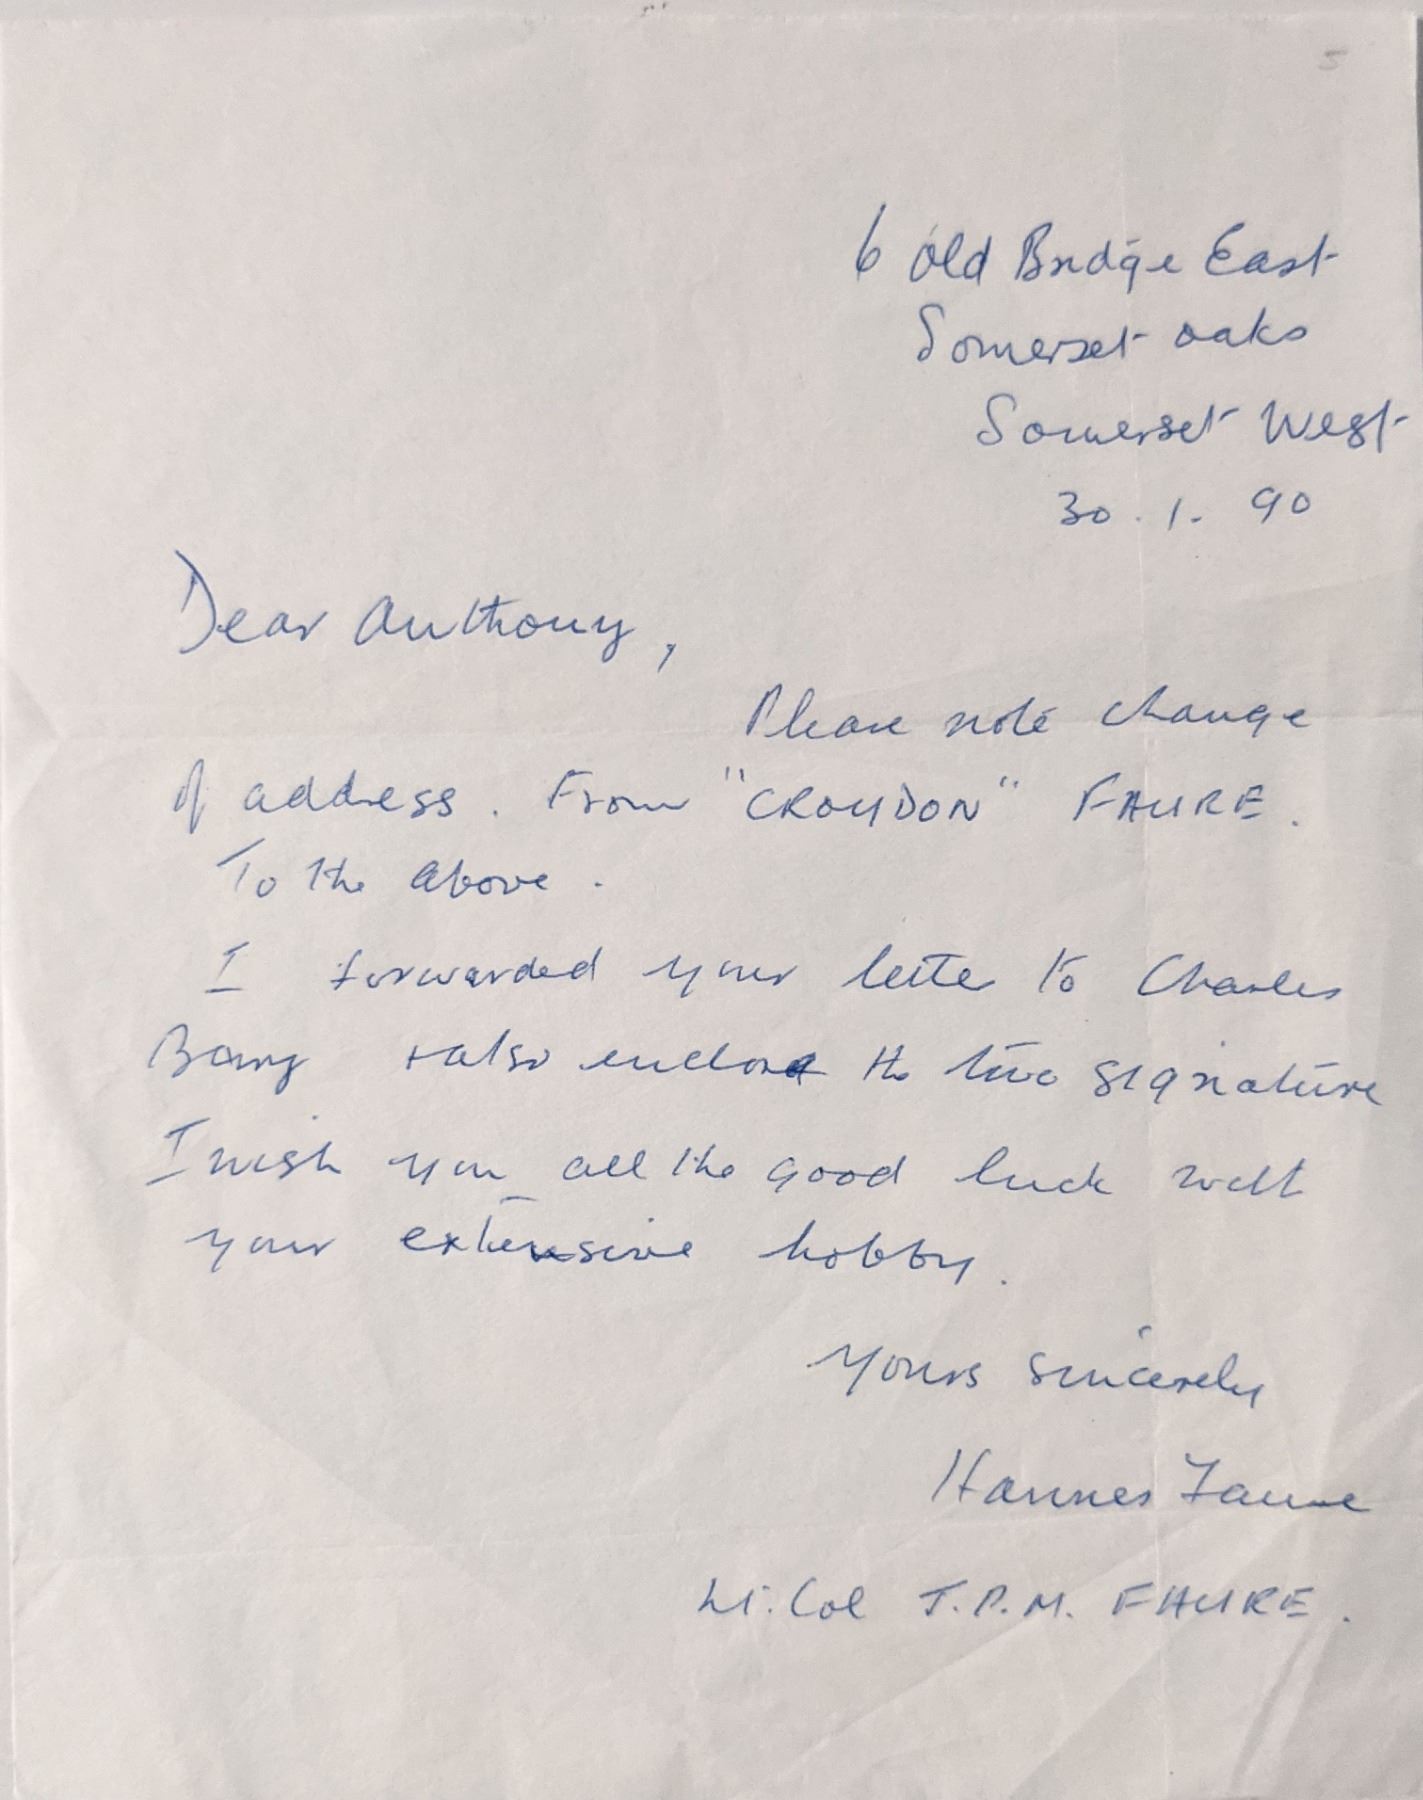 5
6 Old Bridge East
Somerset oaks
Somerset West
30.1.90
Dear Anthony,
Please note change
of address. From "CROYDON" FAURE.
To the above.
I forwarded your lette to Charles
Barry + also enclosed the two signature
I wish you all the good luck with
your extensive hobby.
Yours sincerely
Hannes Faure
Lt. Col J.P.M. FAURE.